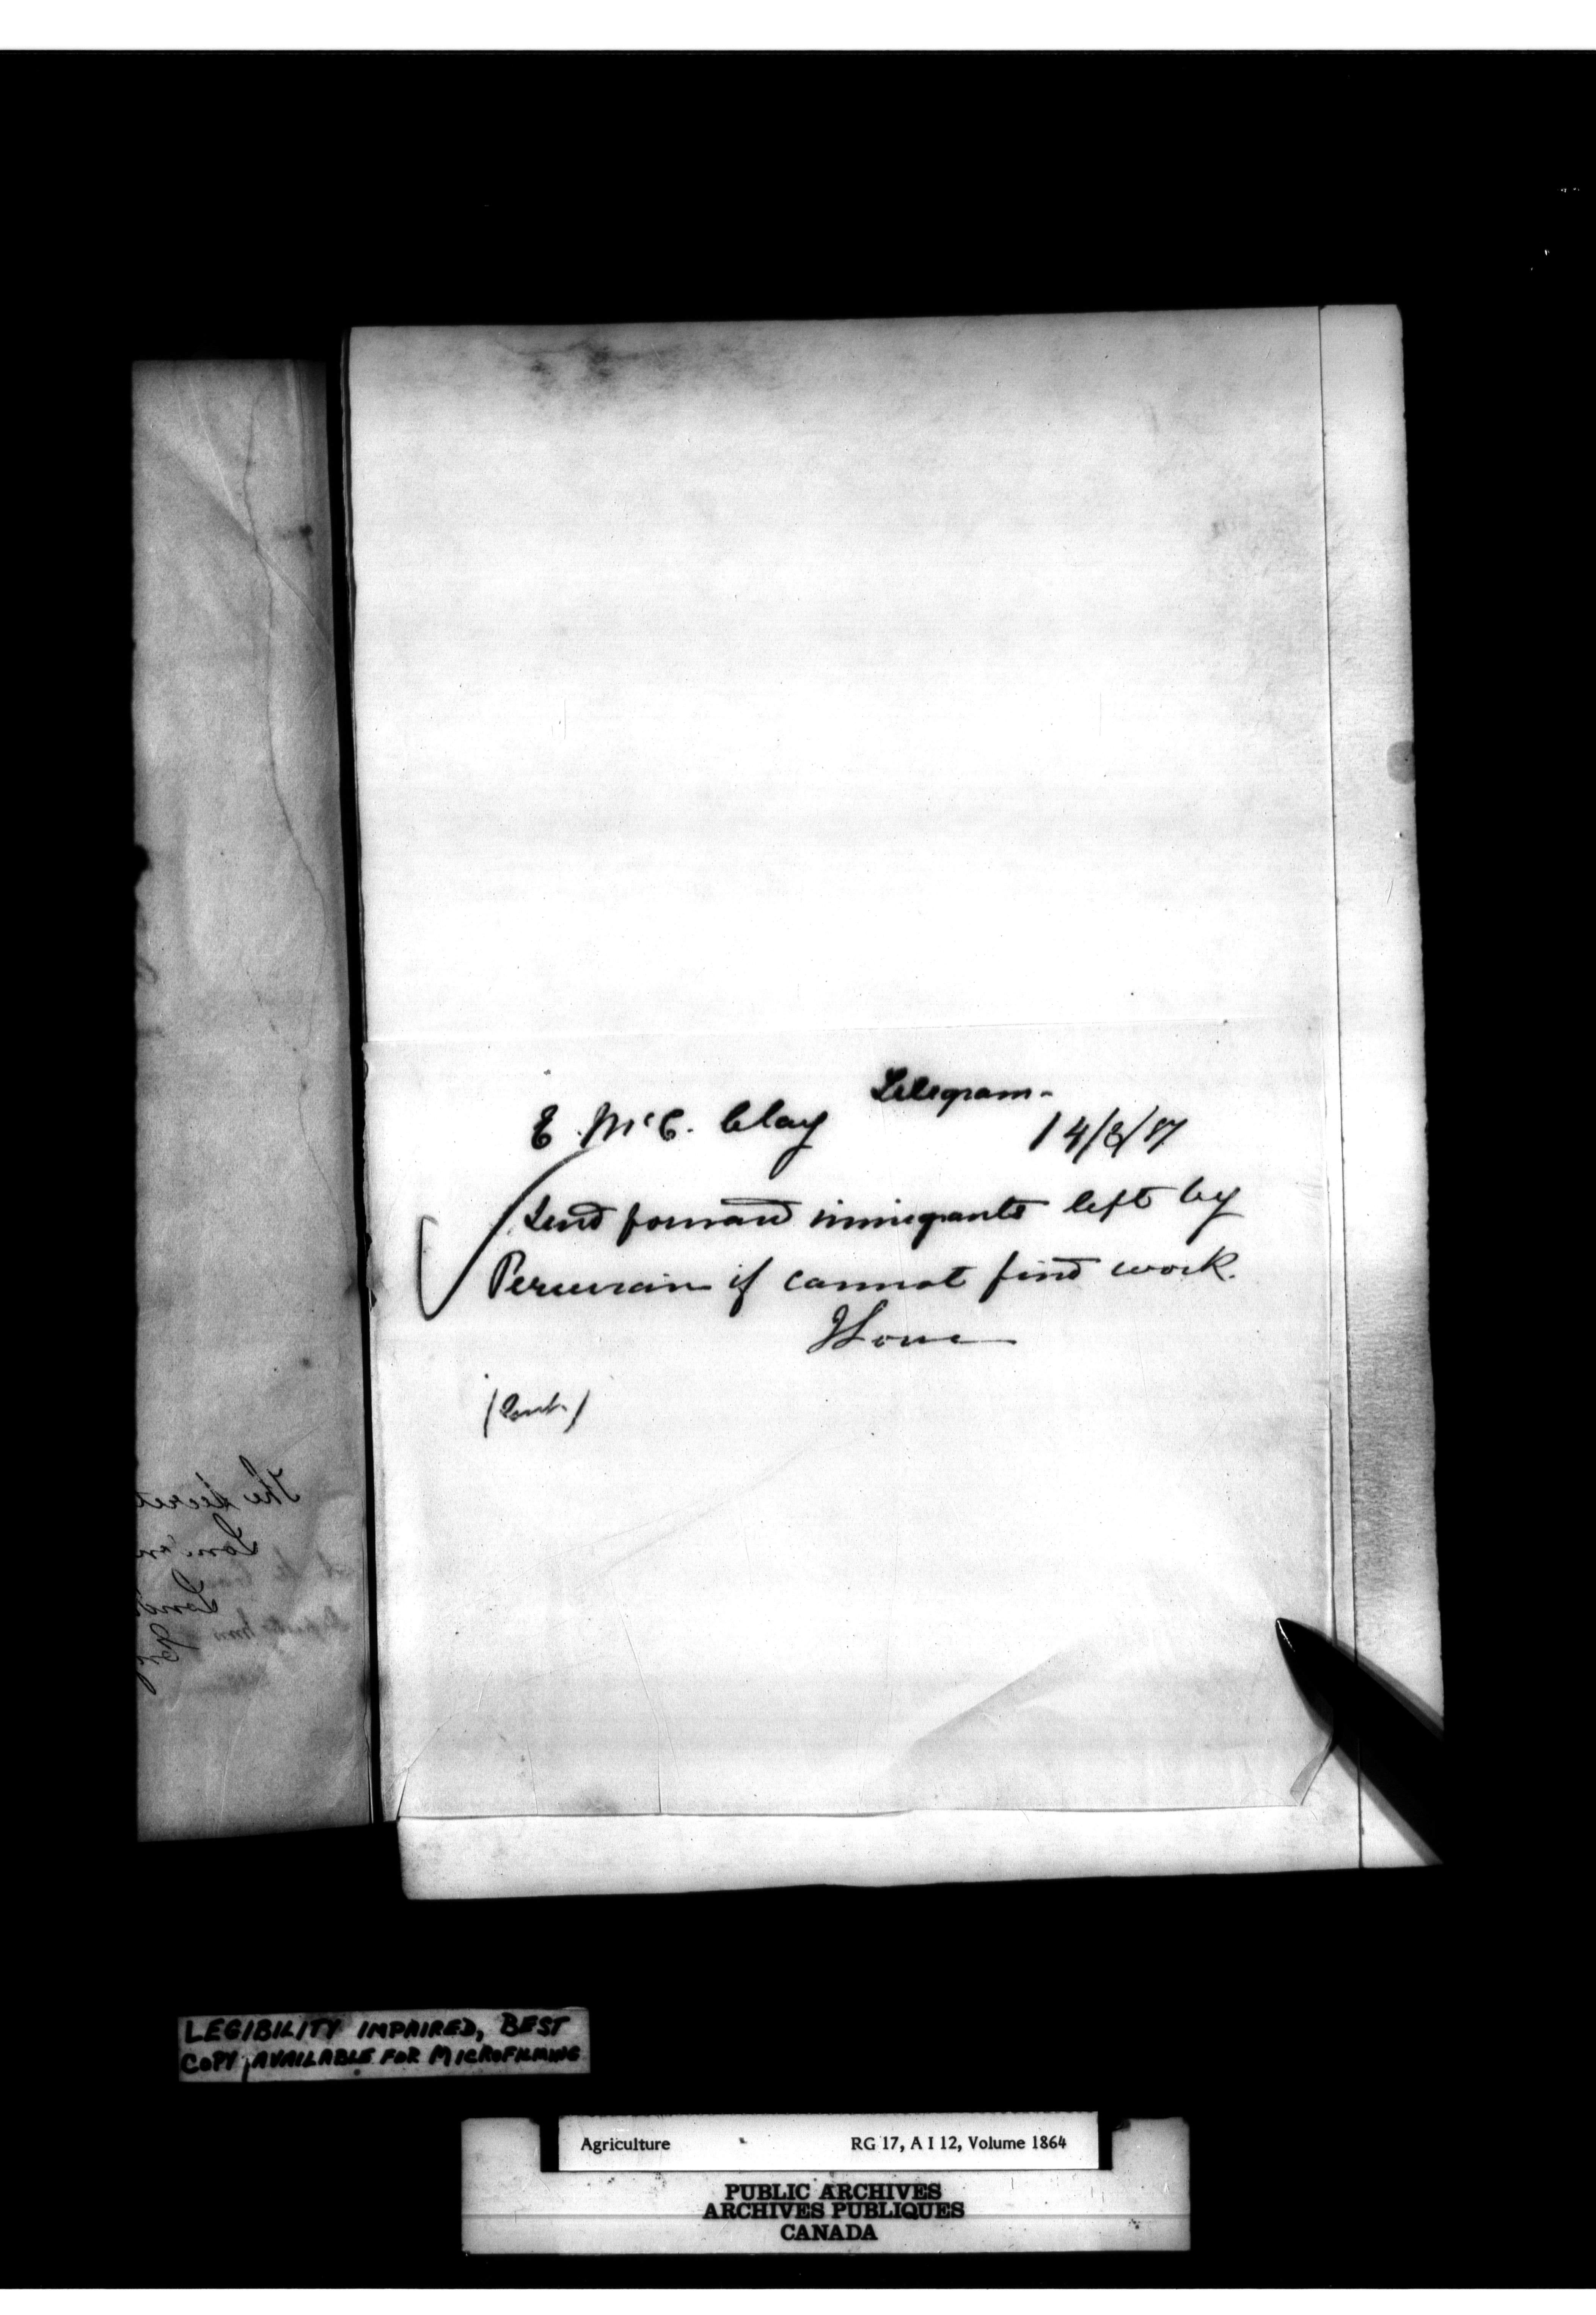 Telegram -
E. McC. Clay
14/3/87
Send forward immigrants left by
Peruvian if cannot find work.
J Lowe
LEGIBILITY IMPAIRED, BEST
COPY AVAILABLE FOR MICROFILMING
Agriculture RG 17, A I 12, Volume 1864
PUBLIC ARCHIVES
ARCHIVES PUBLIQUES
CANADA